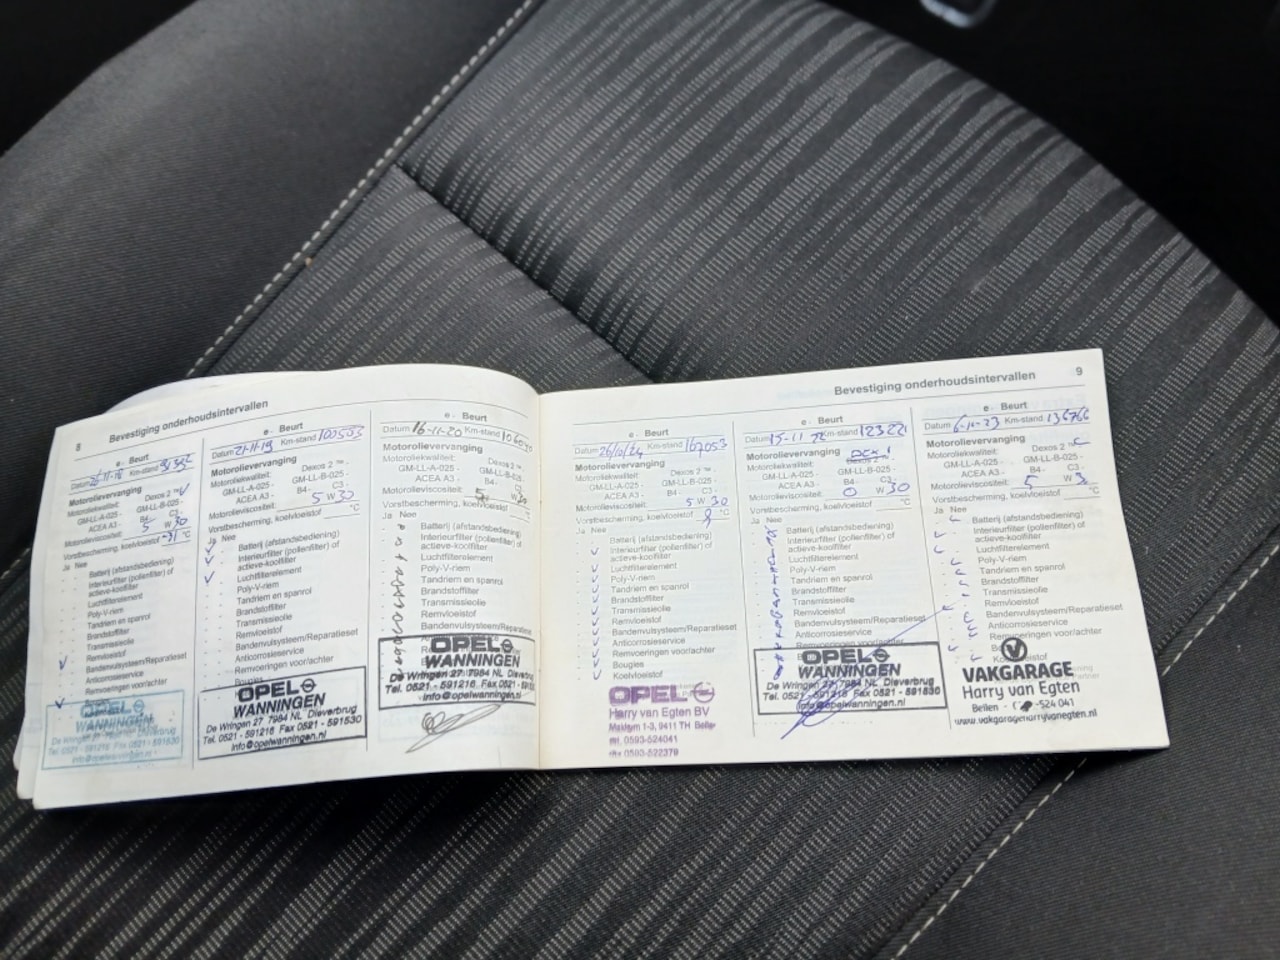 8
Bevestiging onderhoudsintervallen
e - Beurt
Datum Km-stand
Motorolievervanging
Motoroliekwaliteit: Dexos 2 ™
GM-LL-A-025 - GM-LL-B-025 -
ACEA A3 - B4- C3 -
Motorolieviscositeit: 5 W 30
Vorstbescherming, koelvloeistof °C
Ja Nee
Batterij (afstandsbediening)
Interieurfilter (pollenfilter) of
actieve-koolfilter
Luchtfilterelement
Poly-V-riem
Tandriem en spanrol
Brandstoffilter
Transmissieolie
Remvloeistof
Bandenvulsysteem/Reparatieset
Anticorrosieservice
Remvoeringen voor/achter
OPEL
WANNINGEN
De Wringen 27 7984 NL Dieverbrug
Tel. 0521 - 591216 Fax 0521 - 591530
info@opelwanningen.nl
e - Beurt
Datum 21-11-19 Km-stand 100503
Motorolievervanging
Motoroliekwaliteit: Dexos 2 ™ -
GM-LL-A-025 - GM-LL-B-025 -
ACEA A3 - B4 - C3 -
Motorolieviscositeit: 5 W 30
Vorstbescherming, koelvloeistof °C
Ja Nee
Batterij (afstandsbediening)
Interieurfilter (pollenfilter) of
actieve-koolfilter
Luchtfilterelement
Poly-V-riem
Tandriem en spanrol
Brandstoffilter
Transmissieolie
Remvloeistof
Bandenvulsysteem/Reparatieset
Anticorrosieservice
Remvoeringen voor/achter
OPEL
WANNINGEN
De Wringen 27 7984 NL Dieverbrug
Tel. 0521 - 591216 Fax 0521 - 591530
info@opelwanningen.nl
e - Beurt
Datum 16-11-20 Km-stand
Motorolievervanging
Motoroliekwaliteit: Dexos 2 ™ -
GM-LL-A-025 - GM-LL-B-025 -
ACEA A3 - B4 - C3 -
Motorolieviscositeit: 5 W 30
Vorstbescherming, koelvloeistof °C
Ja Nee
Batterij (afstandsbediening)
Interieurfilter (pollenfilter) of
actieve-koolfilter
Luchtfilterelement
Poly-V-riem
Tandriem en spanrol
Brandstoffilter
Transmissieolie
Remvloeistof
Bandenvulsysteem/Reparatieset
OPEL
WANNINGEN
De Wringen 27 7984 NL Dieverbrug
Tel. 0521 - 591216 Fax 0521 - 591530
info@opelwanningen.nl
Bevestiging onderhoudsintervallen
9
e - Beurt
Datum Km-stand 167053
Motorolievervanging
Motoroliekwaliteit: Dexos 2 ™ -
GM-LL-A-025 - GM-LL-B-025 -
ACEA A3 - B4 - C3 -
Motorolieviscositeit: 5 W 30
Vorstbescherming, koelvloeistof °C
Ja Nee
Batterij (afstandsbediening)
Interieurfilter (pollenfilter) of
actieve-koolfilter
Luchtfilterelement
Poly-V-riem
Tandriem en spanrol
Brandstoffilter
Transmissieolie
Remvloeistof
Bandenvulsysteem/Reparatieset
Anticorrosieservice
Remvoeringen voor/achter
Bougies
Koelvloeistof
OPEL
Harry van Egten BV
9411 TH Beilen
tel. 0593-524041
fax 0593-522379
e - Beurt
Datum 15-11 22 Km-stand 123221
Motorolievervanging
Motoroliekwaliteit: Dexos 2 ™ -
GM-LL-A-025 - GM-LL-B-025 -
ACEA A3 - B4 - C3 -
Motorolieviscositeit: 0 W 30
Vorstbescherming, koelvloeistof °C
Ja Nee
Batterij (afstandsbediening)
Interieurfilter (pollenfilter) of
actieve-koolfilter
Luchtfilterelement
Poly-V-riem
Tandriem en spanrol
Brandstoffilter
Transmissieolie
Remvloeistof
Bandenvulsysteem/Reparatieset
Anticorrosieservice
Remvoeringen voor/achter
OPEL
WANNINGEN
De Wringen 27 7984 NL Dieverbrug
Tel. 0521 - 591216 Fax 0521 - 591530
info@opelwanningen.nl
e - Beurt
Datum 6-11-23 Km-stand 136766
Motorolievervanging
Motoroliekwaliteit: Dexos 2 ™
GM-LL-A-025 - GM-LL-B-025 -
ACEA A3 - B4 - C3 -
Motorolieviscositeit: 5 W 30
Vorstbescherming, koelvloeistof °C
Ja Nee
Batterij (afstandsbediening)
Interieurfilter (pollenfilter) of
actieve-koolfilter
Luchtfilterelement
Poly-V-riem
Tandriem en spanrol
Brandstoffilter
Transmissieolie
Remvloeistof
Bandenvulsysteem/Reparatieset
Anticorrosieservice
Remvoeringen voor/achter
VAKGARAGE
Harry van Egten
Beilen -524 041
www.vakgarageharryvanegten.nl